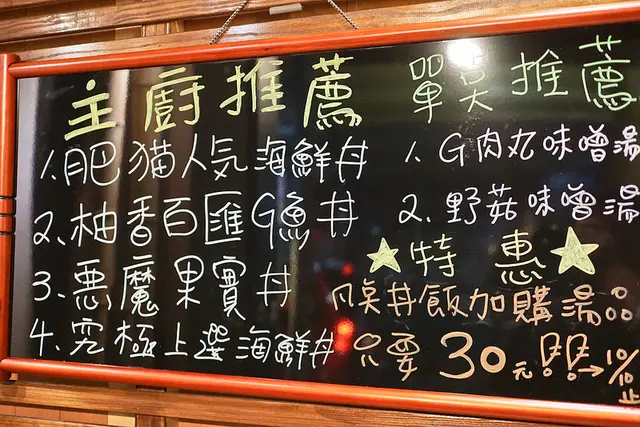 主廚推薦
1.肥猫人気海鮮丼
2.柚香百匯G魚丼
3.悪魔果實丼
4.究極上選海鮮丼
單奌推薦
1.G肉丸味噌湯
2.野菇味噌湯
★特惠★
凡奌丼飯加購湯品
只要30元!!→10/10止